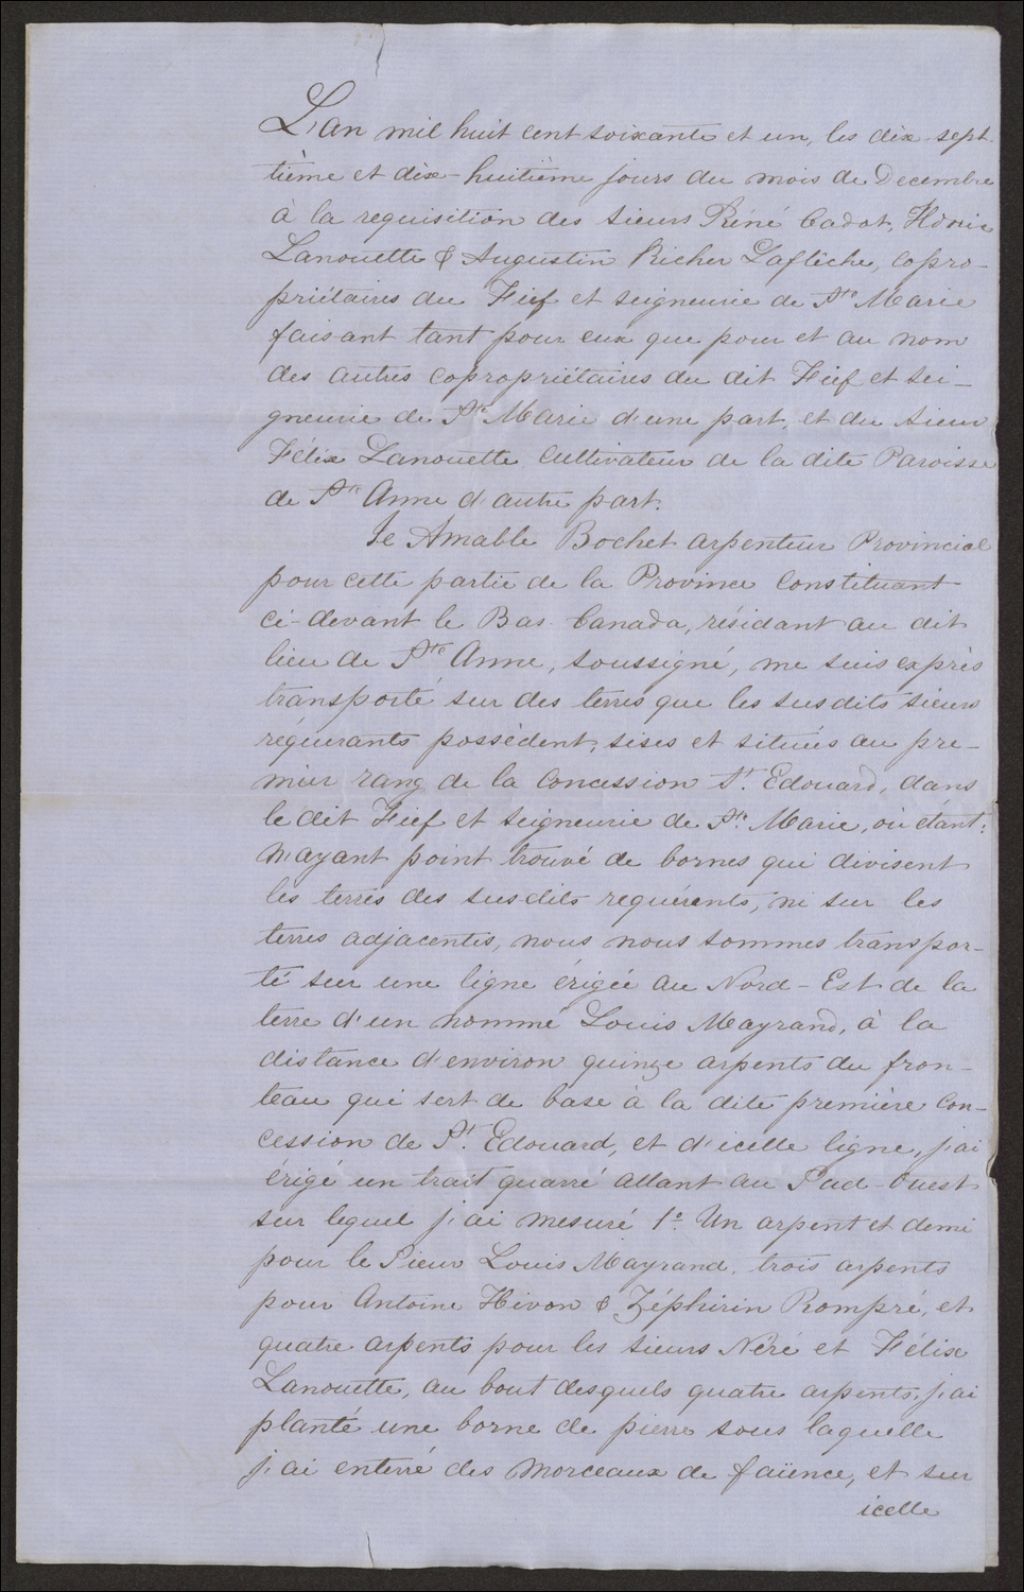 L'an mil huit cent soixante et un, les dix-sept-
tième et dix-huitième jours du mois de Decembre
à la requisition des sieurs Réné Cadot,
Lanouette & Augustin Richer Laflèche, copro-
priétaires du Fief et seigneurie de Ste Marie
faisant tant pour eux que pour et au nom
des autres copropriétaires du dit Fief et sei-
gneurie de Ste Marie d'une part, et du sieur
Félix Lanouette Cultivateur de la dite Paroisse
de Ste Anne d'autre part.
Je Amable Bochet arpenteur Provincial
pour cette partie de la Province Constituant
ci-devant le Bas-Canada, résidant au dit
lieu de Ste Anne, soussigné, me suis exprès
transporté sur des terres que les susdits sieurs
réquerants possèdent, sises et situés au pre-
mier rang de la Concession St. Edouard, dans
le dit Fief et seigneurie de Ste Marie, où étant,
n'ayant point trouvé de bornes qui divisent
les terres des susdits requérents, ni sur les
terres adjacentes, nous nous sommes transpor-
té sur une ligne érigée au Nord-Est de la
terre d'un nommé Louis Mayrand, à la
distance d'environ quinze arpents du fron-
teau qui sert de base à la dite première Con-
cession de St. Edouard, et d'icelle ligne, j'ai
érigé un trait quarré allant au Sud-Ouest
sur lequel j'ai mesuré 1o. Un arpent et demi
pour le Sieur Louis Mayrand, trois arpents
pour Antoine Hivon & Zéphirin Rompré, et
quatre arpents pour les sieurs Néré et Félix
Lanouette, au bout desquels quatre arpents, j'ai
planté une borne de pierre sous laquelle
j'ai enterré des morceaux de faïence, et sur
icelle